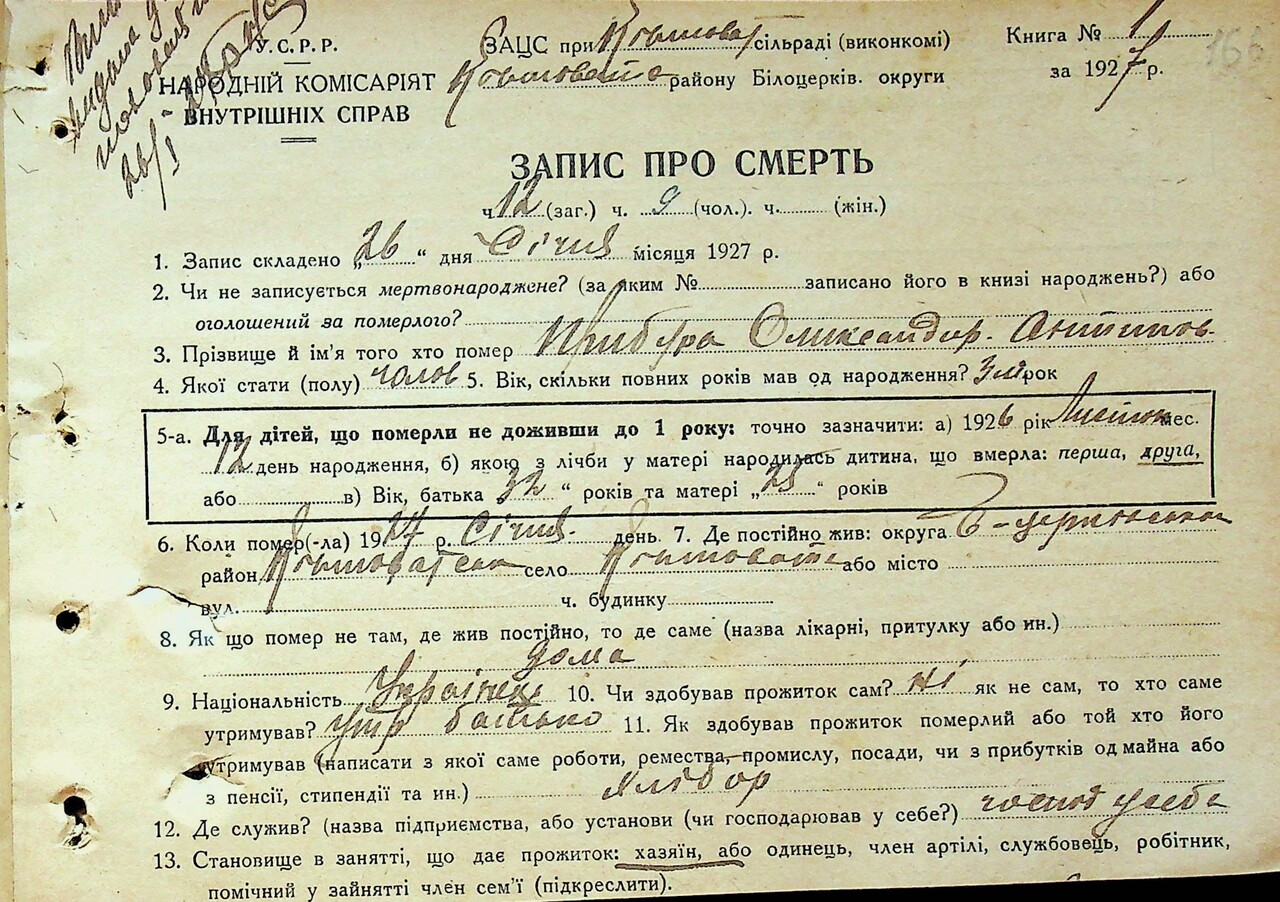 видана
26/I
У.С.Р.Р.
НАРОДНІЙ КОМІСАРІЯТ
ВНУТРІШНІХ СПРАВ
ЗАЦС при сільраді (виконкомі)
району Білоцерків. округи
Книга № 1
за 1927 р.
166
ЗАПИС ПРО СМЕРТЬ
ч. 12 (заг.) ч. 9 (чол.). ч. (жін.)
1. Запис складено „26“ дня Січня місяця 1927 р.
2. Чи не записується мертвонароджене? (за яким № записано його в книзі народжень?) або
оголошений за померлого?
3. Прізвище й ім'я того хто помер Олександр.
4. Якої стати (полу) чолов 5. Вік, скільки повних років мав од народження? рок
5-а. Для дітей, що померли не доживши до 1 року: точно зазначити: а) 1926 рік мес.
12 день народження, б) якою з лічби у матері народилась дитина, що вмерла: перша, друга,
або в) Вік, батька 32 “ років та матері „ “ років
6. Коли помер(-ла) 1927 р. Січня день 7. Де постійно жив: округа Б-церківська
район село або місто
вул. ч. будинку
8. Як що помер не там, де жив постійно, то де саме (назва лікарні, притулку або ин.)
дома
9. Національність Українець 10. Чи здобував прожиток сам? ні як не сам, то хто саме
утримував? утр батько 11. Як здобував прожиток померлий або той хто його
утримував (написати з якої саме роботи, ремества, промислу, посади, чи з прибутків од майна або
з пенсії, стипендії та ин.) хлібор
12. Де служив? (назва підприємства, або установи (чи господарював у себе?) господ у себе
13. Становище в занятті, що дає прожиток: хазяїн, або одинець, член артілі, службовець, робітник,
помічний у зайнятті член сем'ї (підкреслити).